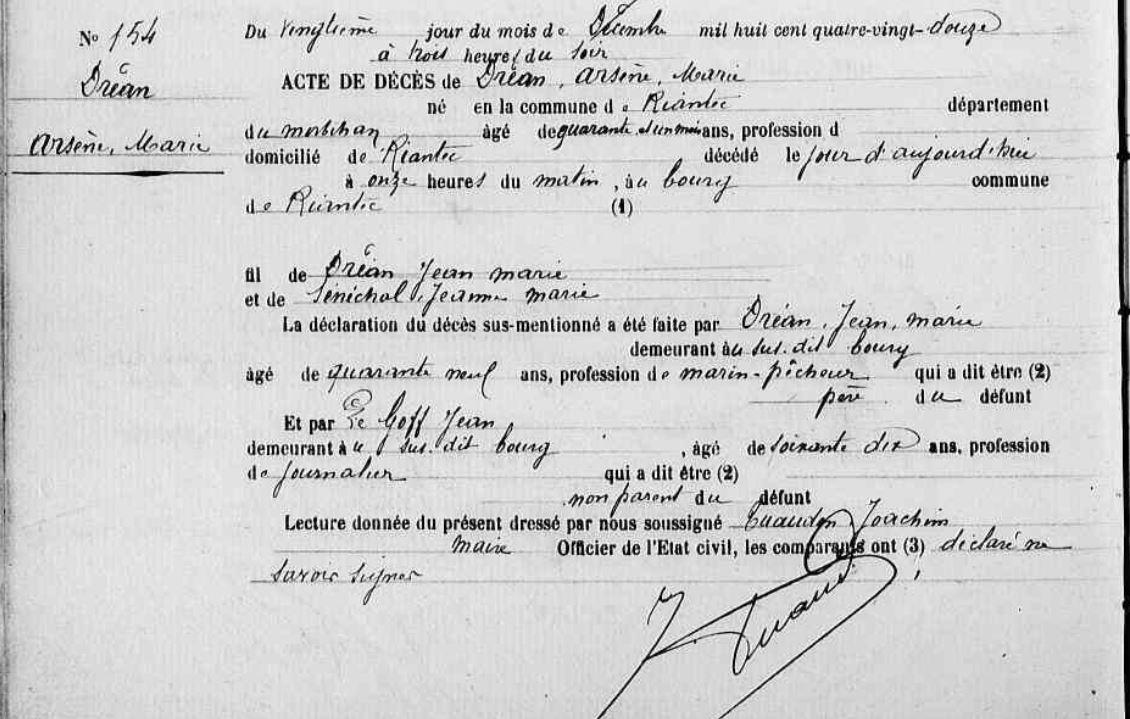 No 154
Dréan
Arsène, Marie
Du vingtième jour du mois de Décembre mil huit cent quatre-vingt-douze
à trois heures du soir
ACTE DE DÉCÈS de Dréan, Arsène, Marie
né en la commune de Riantec département
du morbihan âgé de quarante et un mois ans, profession d
domicilié de Riantec décédé le jour d'aujourd'hui
à onze heures du matin, au bourg commune
de Riantec (1)
fil de Dréan Jean marie
et de Sénéchal, Jeanne marie
La déclaration du décès sus-mentionné a été faite par Dréan, Jean, marie
demeurant au sus-dit bourg
âgé de quarante neuf ans, profession de marin-pêcheur qui a dit être (2)
père du défunt
Et par Le Goff Jean
demeurant au sus-dit bourg, âgé de soixante dix ans, profession
de journalier qui a dit être (2)
non parent du défunt
Lecture donnée du présent dressé par nous soussigné Joachim
maire Officier de l'Etat civil, les comparants ont (3) déclaré ne
savoir signer